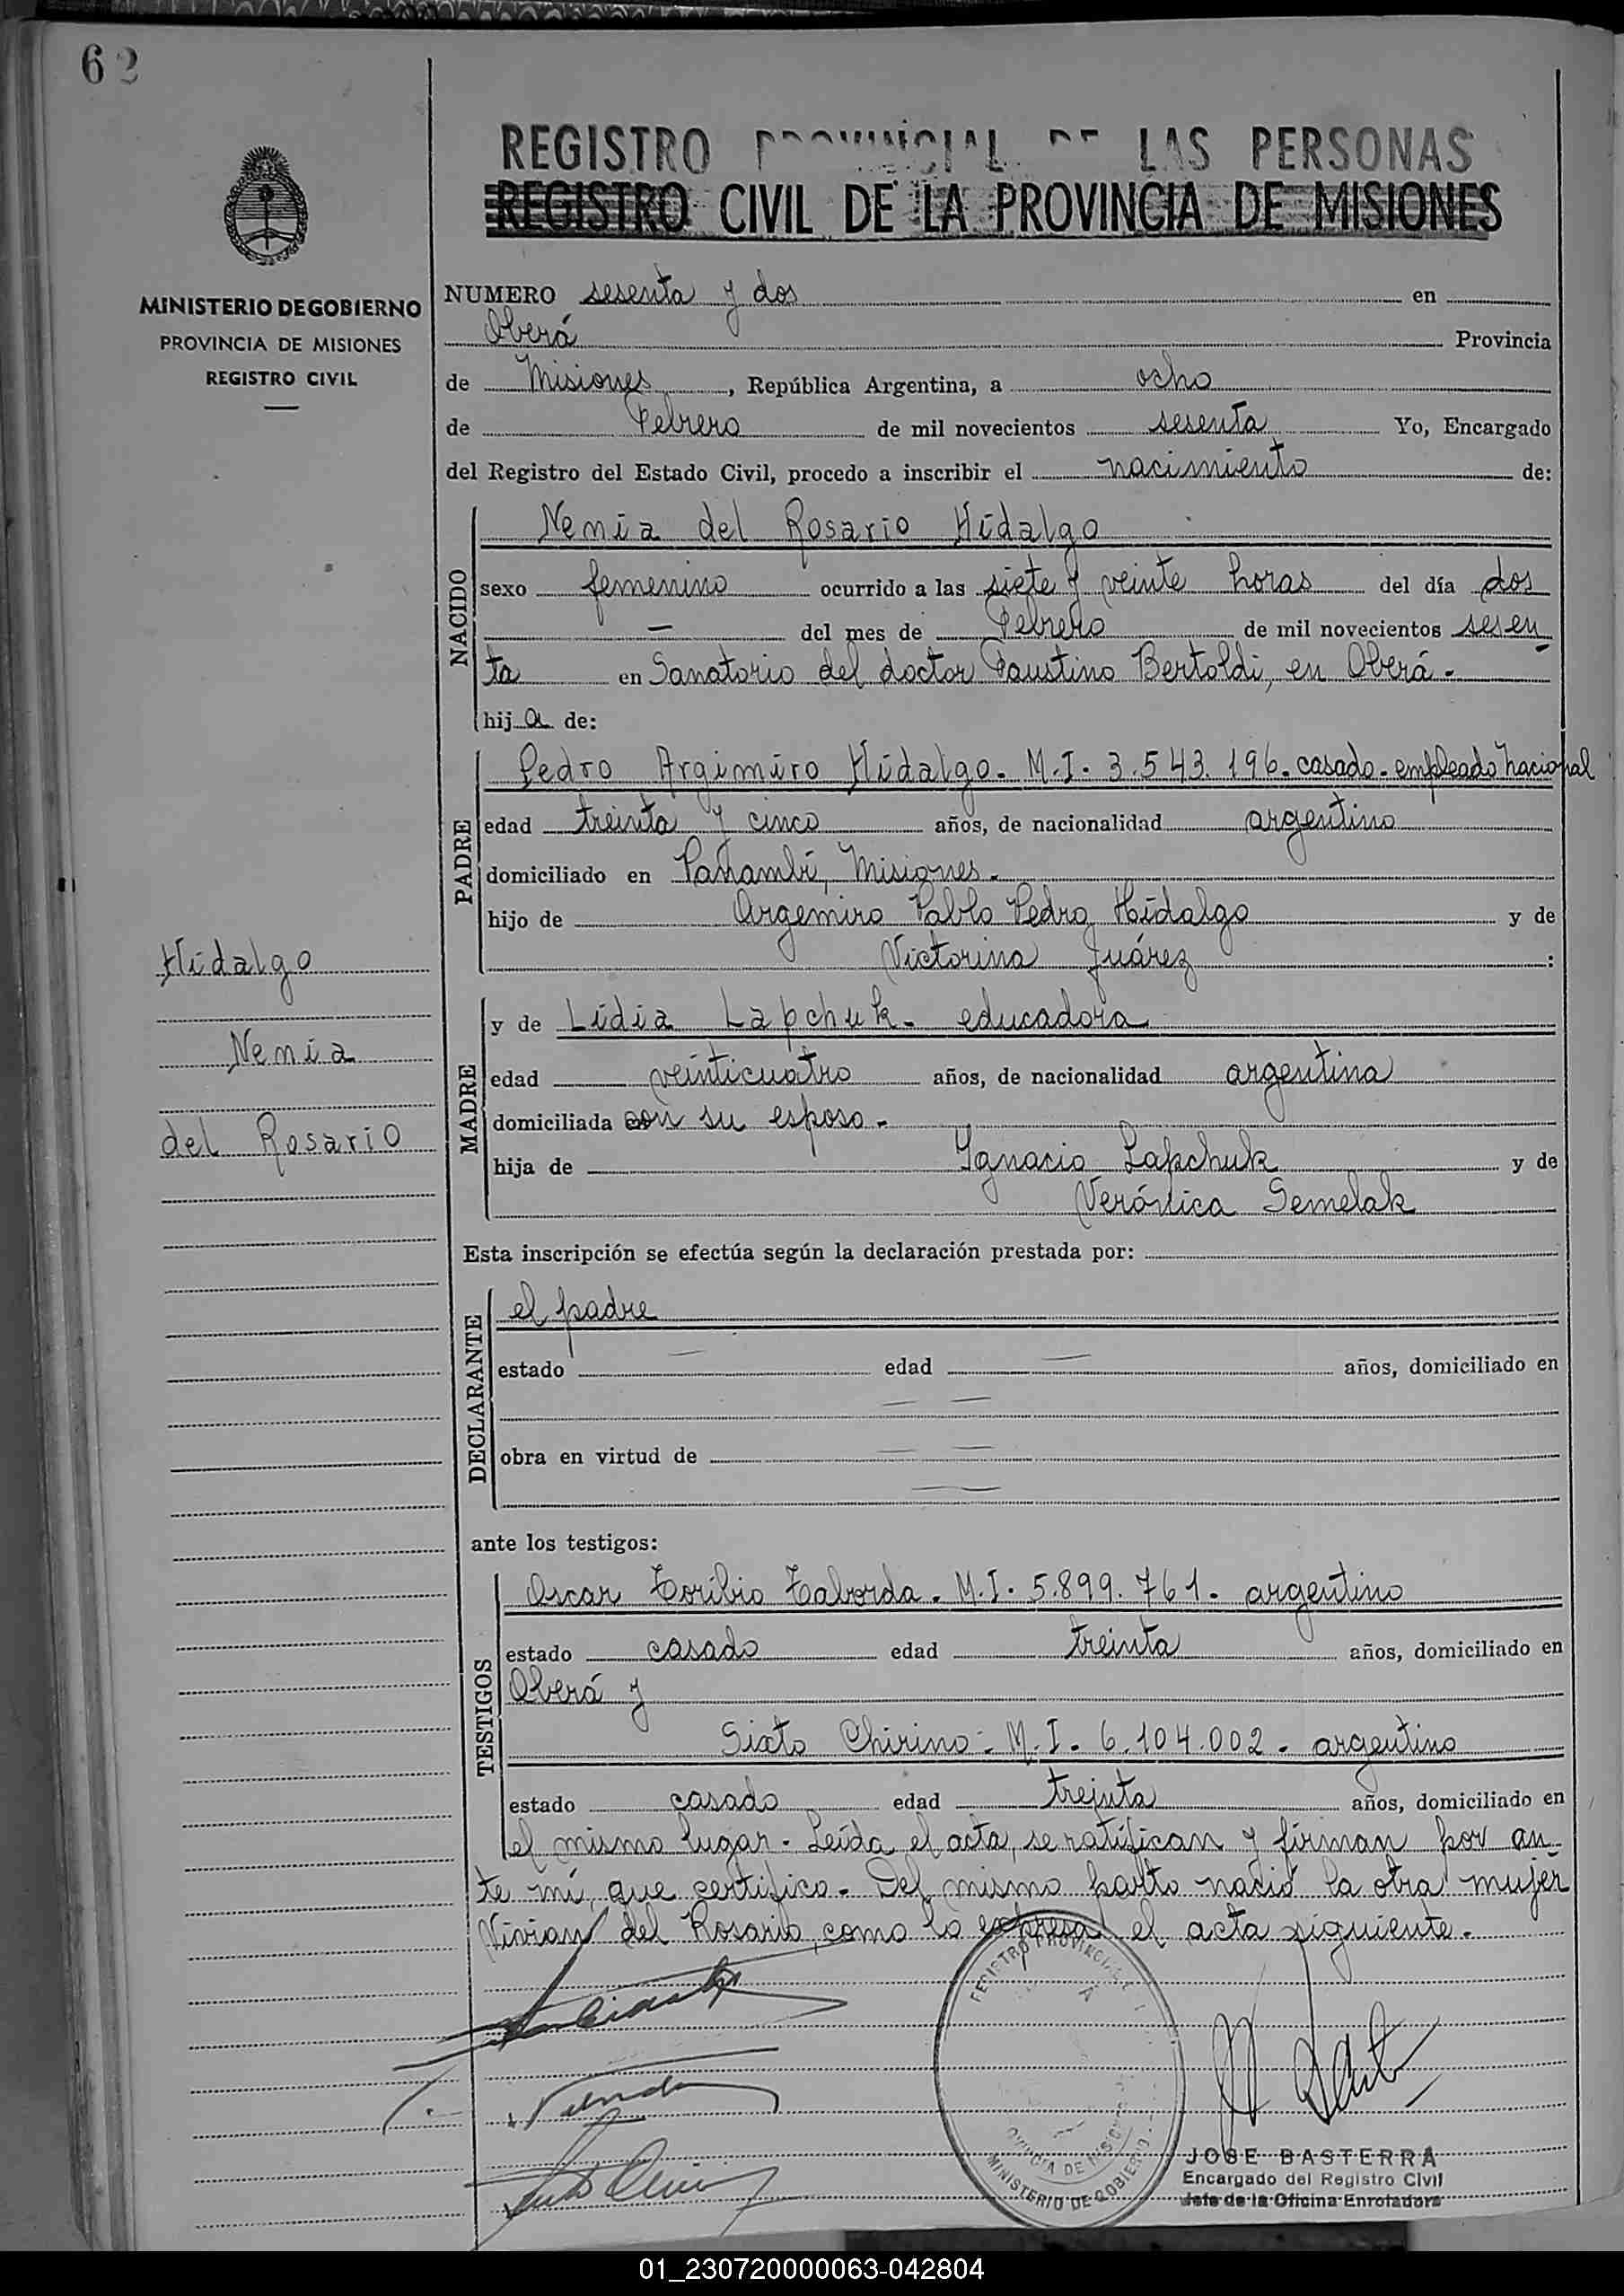 62
REGISTRO PROVINCIAL DE LAS PERSONAS
REGISTRO CIVIL DE LA PROVINCIA DE MISIONES
MINISTERIO DE GOBIERNO
PROVINCIA DE MISIONES
REGISTRO CIVIL
NUMERO sesenta y dos en
Oberá Provincia
de Misiones, República Argentina, a ocho
de Febrero de mil novecientos sesenta Yo, Encargado
del Registro del Estado Civil, procedo a inscribir el nacimiento de:
NACIDO
Nemia del Rosario Hidalgo
sexo femenino ocurrido a las siete y veinte horas del día dos
— del mes de Febrero de mil novecientos sesen
ta en Sanatorio del doctor Faustino Bertoldi, en Oberá.-
hija de:
PADRE
Pedro Argimiro Hidalgo. M.I. 3.543.196. casado. empleado nacional
edad treinta y cinco años, de nacionalidad argentino
domiciliado en Panambí, Misiones.
hijo de Argemiro Pablo Pedro Hidalgo y de
Victorina Juárez :
Hidalgo
Nemia
del Rosario
MADRE
y de Lidia Lapchuk. educadora
edad veinticuatro años, de nacionalidad argentina
domiciliada con su esposo.
hija de Ignacio Lapchuk y de
Verónica Semelak
Esta inscripción se efectúa según la declaración prestada por:
DECLARANTE
el padre
estado — edad — años, domiciliado en
— —
obra en virtud de — —
— —
ante los testigos:
TESTIGOS
Oscar Toribio Taborda. M.I. 5.899.761. argentino
estado casado edad treinta años, domiciliado en
Oberá y
Sixto Chirino. M.I. 6.104.002. argentino
estado casado edad treinta años, domiciliado en
el mismo lugar. Leída el acta, se ratifican y firman por an
te mí, que certifico. Del mismo parto nació la otra mujer
Vivian del Rosario, como lo expresa el acta siguiente.
REGISTRO PROVINCIAL
PROVINCIA DE MISIONES
MINISTERIO DE GOBIERNO
JOSE BASTERRA
Encargado del Registro Civil
Jefe de la Oficina Enroladora
01_230720000063-042804